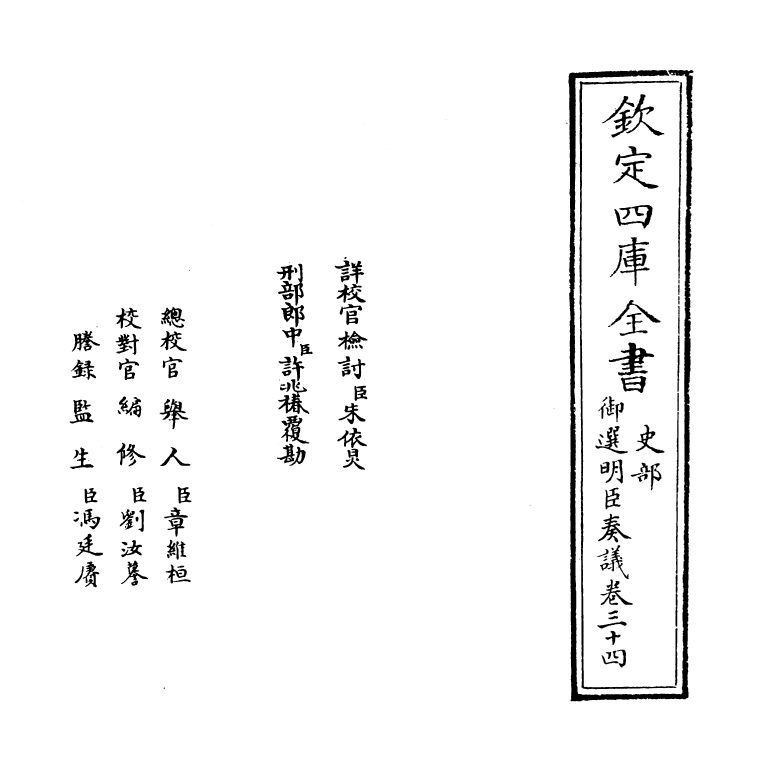 欽定四庫全書
史部
御選明臣奏議卷三十四
詳校官檢討臣朱依炅
刑部郎中臣許兆椿覆勘
總校官舉人臣章維桓
校對官編修臣劉汝謩
謄録監生臣馮廷賡